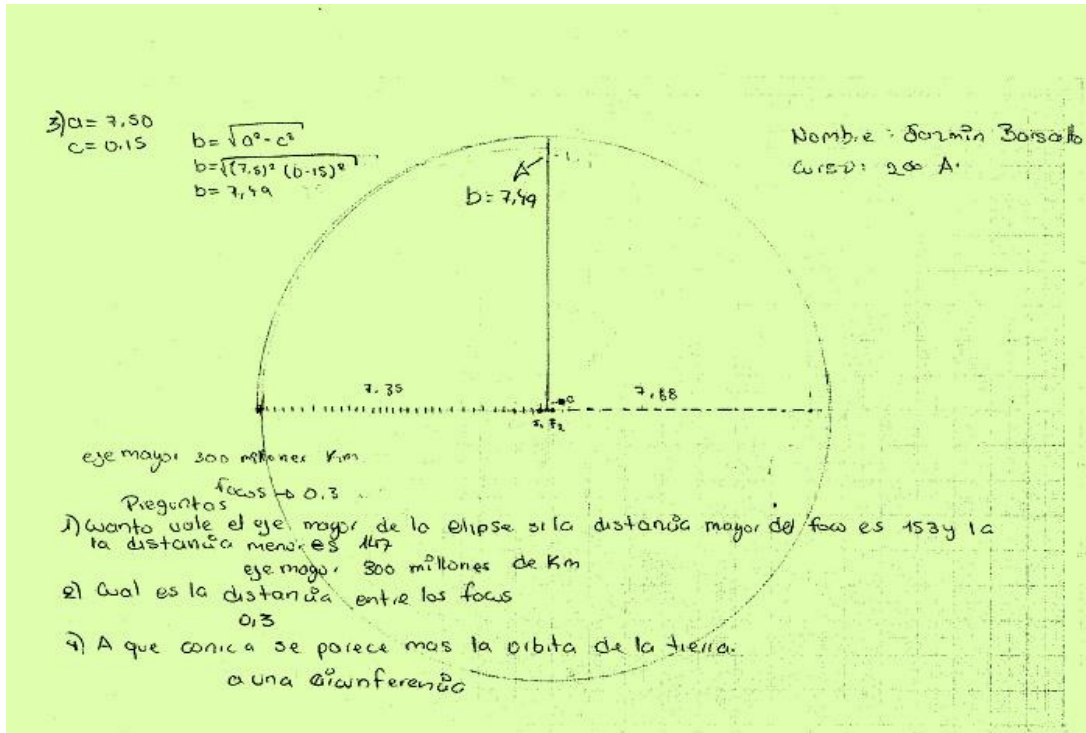 3) a = 7,50
c = 0,15
b = √a² - c²
b = √(7,5)² (0-15)²
b = 7,49
Nombre: Jazmin
Curso: 2do A.
b = 7,49
7.35
7,88
F₁ F₂
eje mayor 300 millones Km
focos → 0.3
Preguntas
1) Cuanto vale el eje mayor de la elipse si la distancia mayor del foco es 153 y la
la distancia menor es 147
eje mayor 300 millones de Km
2) Cual es la distancia entre los focos
0,3
4) A que conica se parece mas la orbita de la tierra.
a una circunferencia